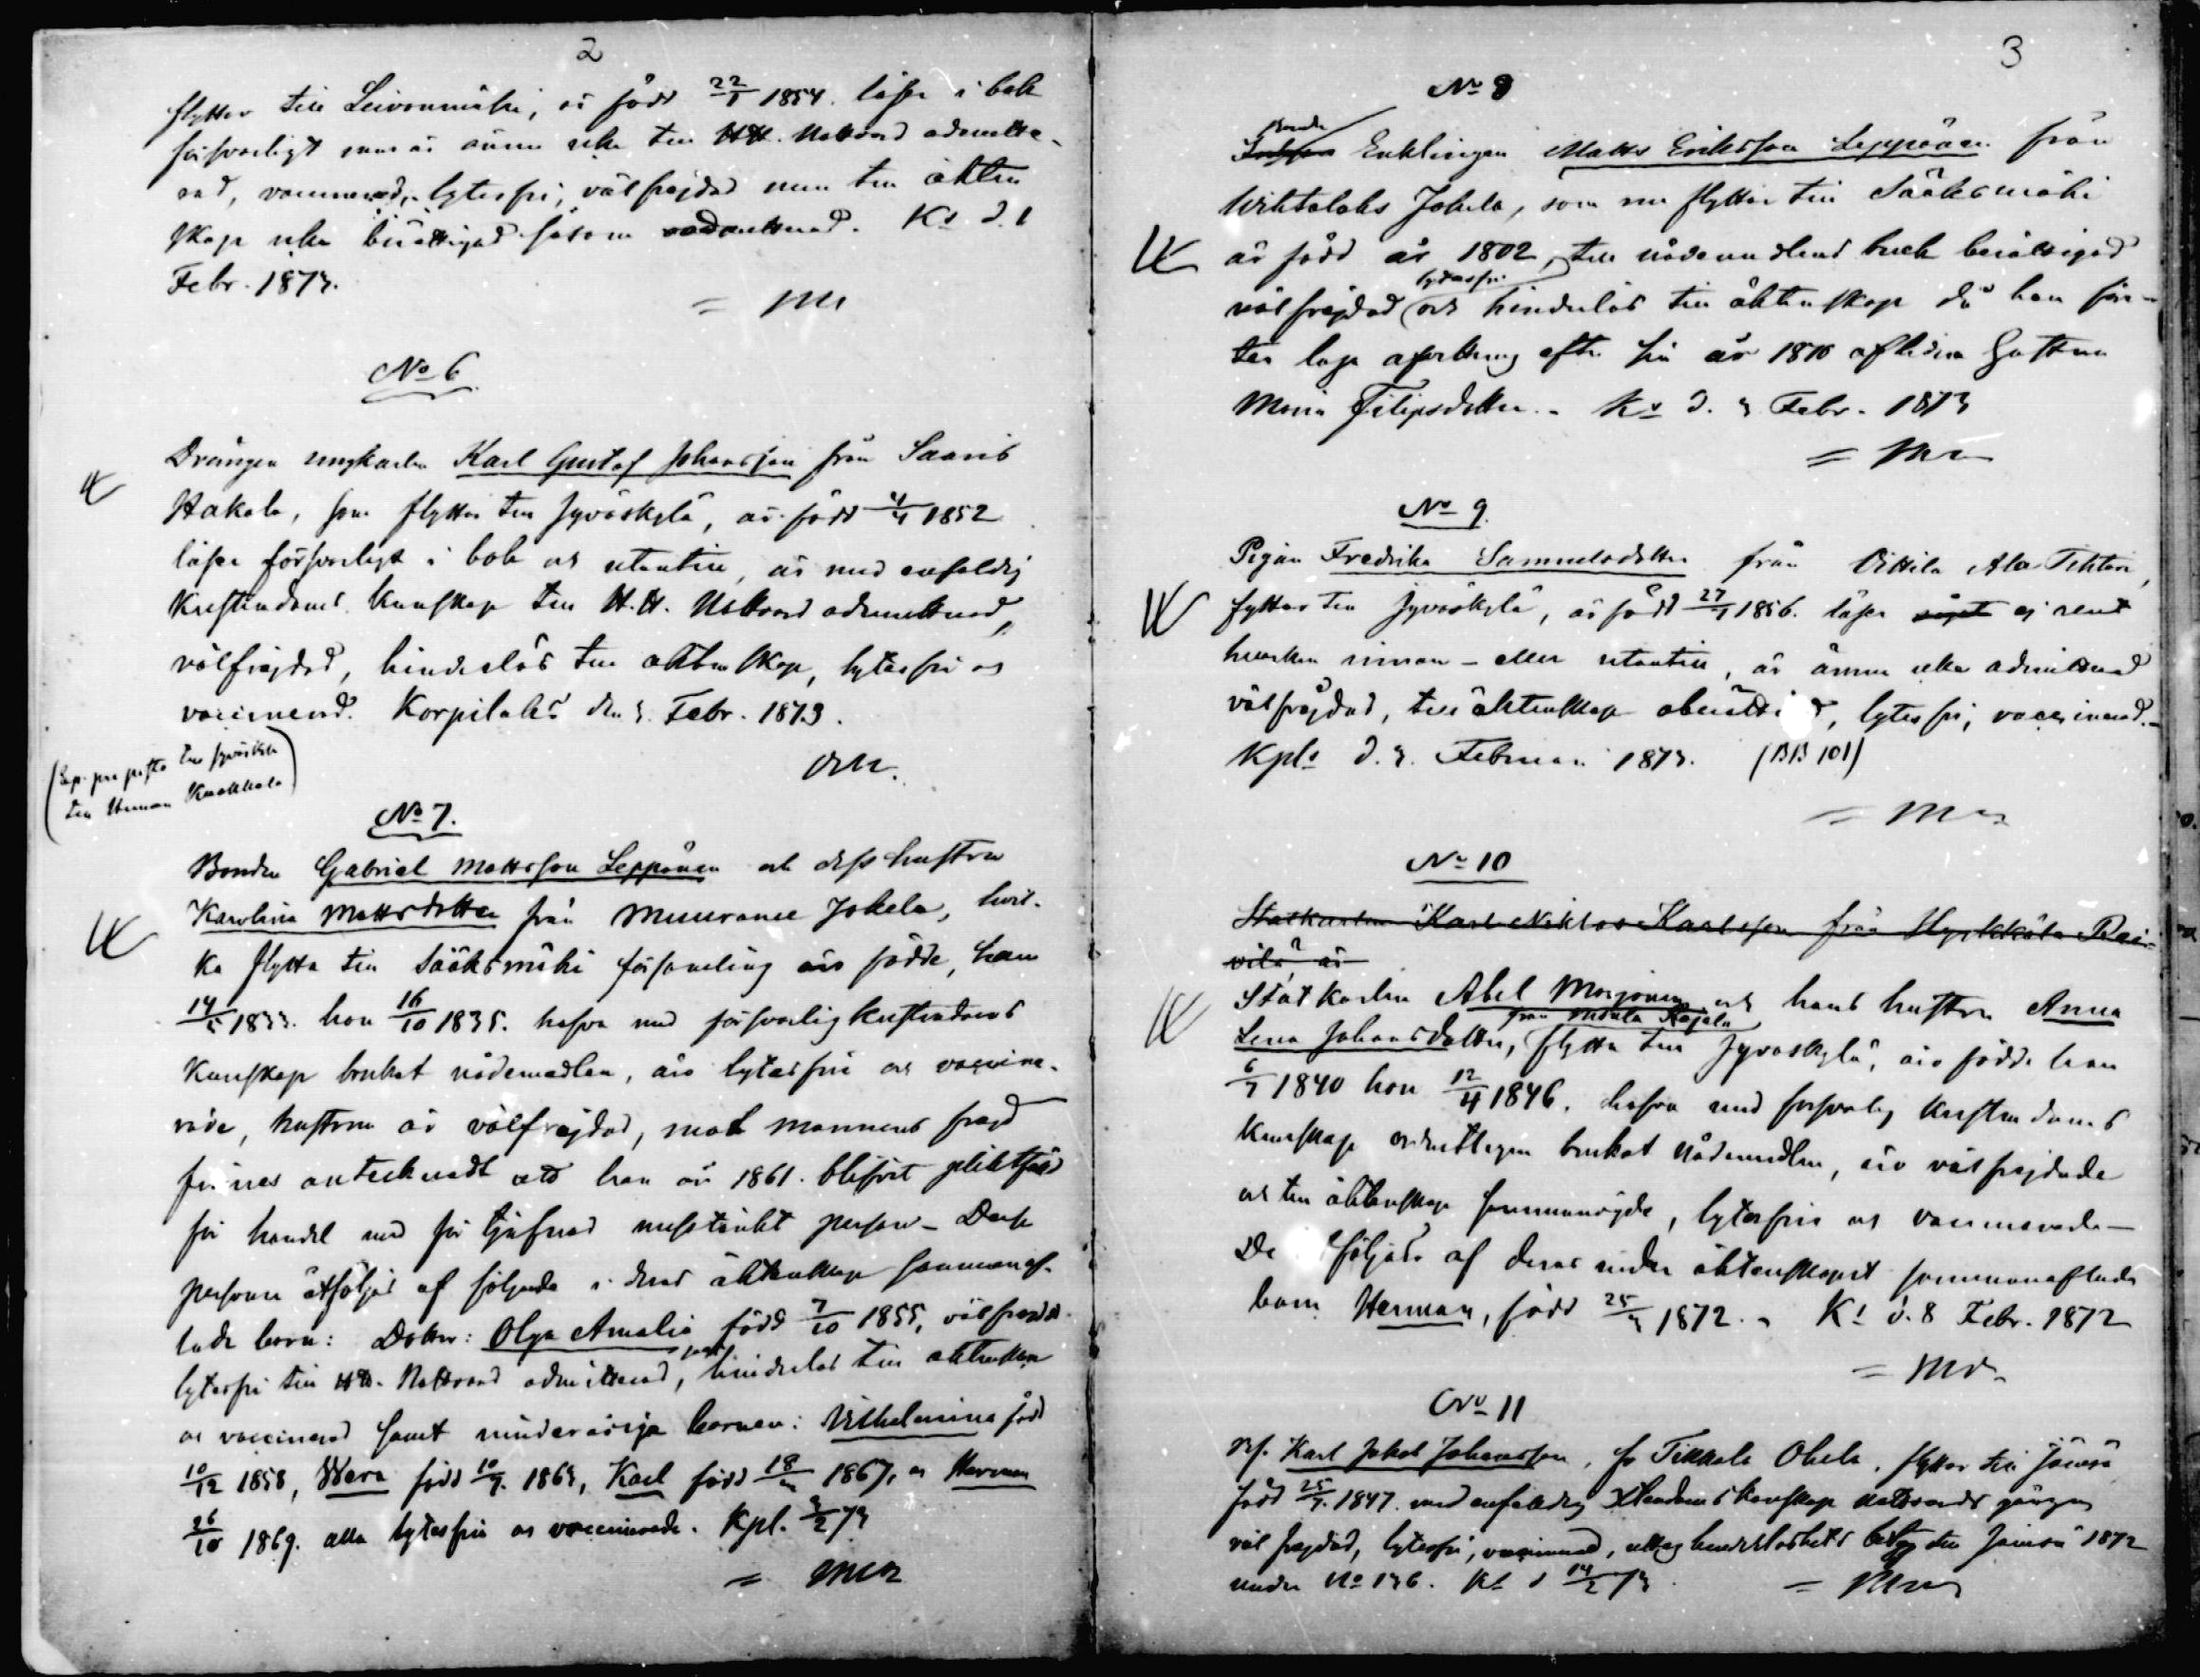 2
flyttar till Leivonmäki, är född 22/1 1854. läser i bok
försvarligt men är ännu icke till H.H. Nattvard admitte-
rad, vaccinerad, lytesfri, välfrejdad men till äkten
skap icke berättigad såsom oadmitterad. Ks d. 1
Febr. 1873.
= Mr
No 6.
Drängen ungkarlen Karl Gustaf Johansson från Saaris
Hakola, som flyttar till Jyväskylä, är född 4/4 1852
läser försvarligt i bok och utantill, är med enfaldig
kristendoms kunskap till H.H. Nattvard admitterad,
välfrejdad, hinderlös till äktenskap, lytesfri och
vaccinerad. Korpilaks den 3. Febr. 1873.
(Exp. per posto till Jyväskylä
till Herman Kuokkala)
No 7.
Bonden Gabriel Mattsson Leppänen och dess hustru
Karolina Mattsdotter från Muurame Jokela, hvil-
ka flytta till Sääksmäki församling äro födde, han
14/5 1833. hon 16/10 1835. hafva med försvarlig kristendoms
kunskap brukat nådemedlen, äro lytesfri och vaccine-
rade, hustrun är välfrejdad, mot mannens frejd
finnes antecknadt att han år 1861. blifvit pliktfäld
för handel med för tjufnad misstänkt person - Dessa
personer åtföljas af följande i deras äktenskap sammanaf-
lade barn: Dotter: Olga Amalia född 7/10 1855, välfrejdad
lytesfri till HH. Nattvard admitterad, hinderlös till äktenskap
och vaccinerad samt minderåriga barnen: Vilhelmina född
10/12 1858, Wera född 10/7. 1863, Karl född 18/ 1867, och Herman
26/10 1869. alla lytesfri och vaccinerade. Kpl. 3/2 73
3
No 8
Bonde
Enklingen Matts Eriksson Leppänen från
Wihtalaks Jokela, som nu flyttar till Sääksmäki
är född år 1802, till nådemedlens bruk berättigad
lytesfri
välfrejdad och hinderlös till äktenskap då han för-
ter laga afvittring efter sin år 1870 aflidna hustru
Maria Filipsdotter. - Ks d. 3 Febr. 1873
No 9.
Pigan Fredrika Samuelsdotter från Vittila Ala-Tikkari,
flyttar till Jyväskylä, är född 27/7 1856. läser ej rent
hvarken innan - eller utantill, är ännu icke admitterad
välfrejdad, till äktenskap oberätti d, lytesfri, vaccinerad. -
Kpls d. 3. Februari 1873. (BB 101)
No 10
Statkarlen Karl Niklas Karlsson från Hyrkkälä Pai-
vilä är
Statkarlen Abel Morjonen och hans hustru Anna
från Kajala
Lena Johansdotter, flytta till Jyväskylä, äro födde han
6/7 1840 hon 12/4 1846. hafva med försvarlig kristendoms
kunskap ordentligen brukat nådemedlen, äro välfrejdade
och till äktenskap sammanvigde, lytesfria och vaccinerade -
De tföljas af deras under äktenskapet sammanaflade
barn Herman, född 25/ 1872. - Ks d. 8 Febr. 1872
No 11
Karl Jakob Johansson, fr Tikkala Ohela, flyttar till Jämsä
född 25/7. 1847. med enfaldig Xtendoms kunskap nattvards gången
välfrejdad, lytesfri, vaccinerad, uttog hinderlöshets betyg till Jämsä 1872
under No 136. Ks d 14/2 73